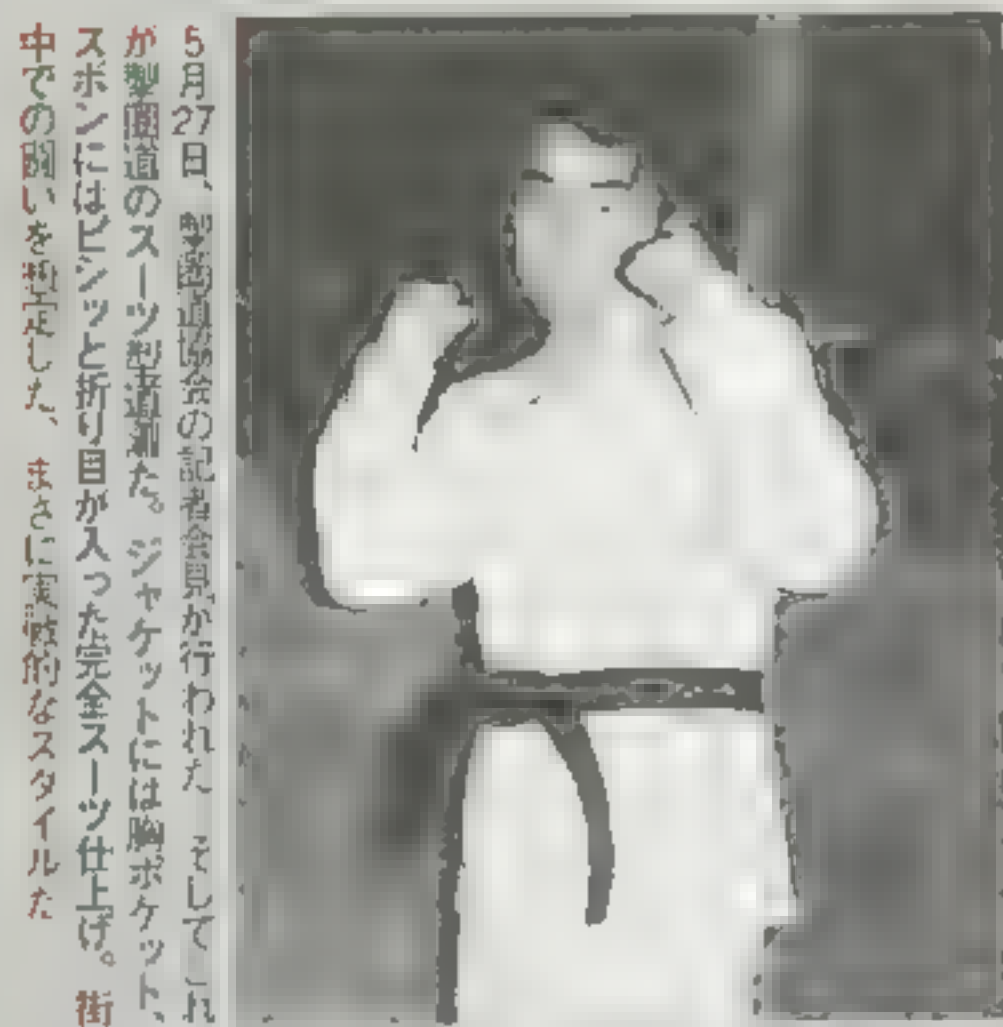 5月27日、掣圏道協会の記者会見が行われた そしてこれ
が掣圏道のスーツ型道着だ。ジャケットには胸ポケット、
ズボンにはピシッと折り目が入った完全スーツ仕上げ。街
中での闘いを想定した、まさに実戦的なスタイルだ